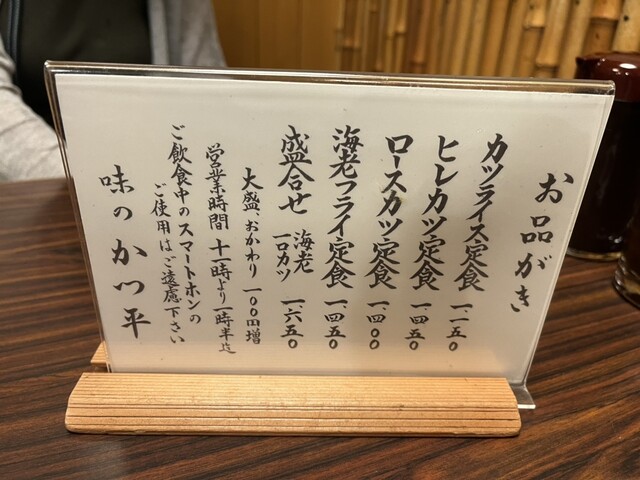 お品がき
カツライス定食 一、一五〇
ヒレカツ定食 一、四五〇
ロースカツ定食 一、四〇〇
海老フライ定食 一、四五〇
盛合せ 海老 一口カツ 一、六五〇
大盛、おかわり 一〇〇円増
営業時間 十一時より一時半迄
ご飲食中のスマートホンの
ご使用はご遠慮下さい
味のかつ平